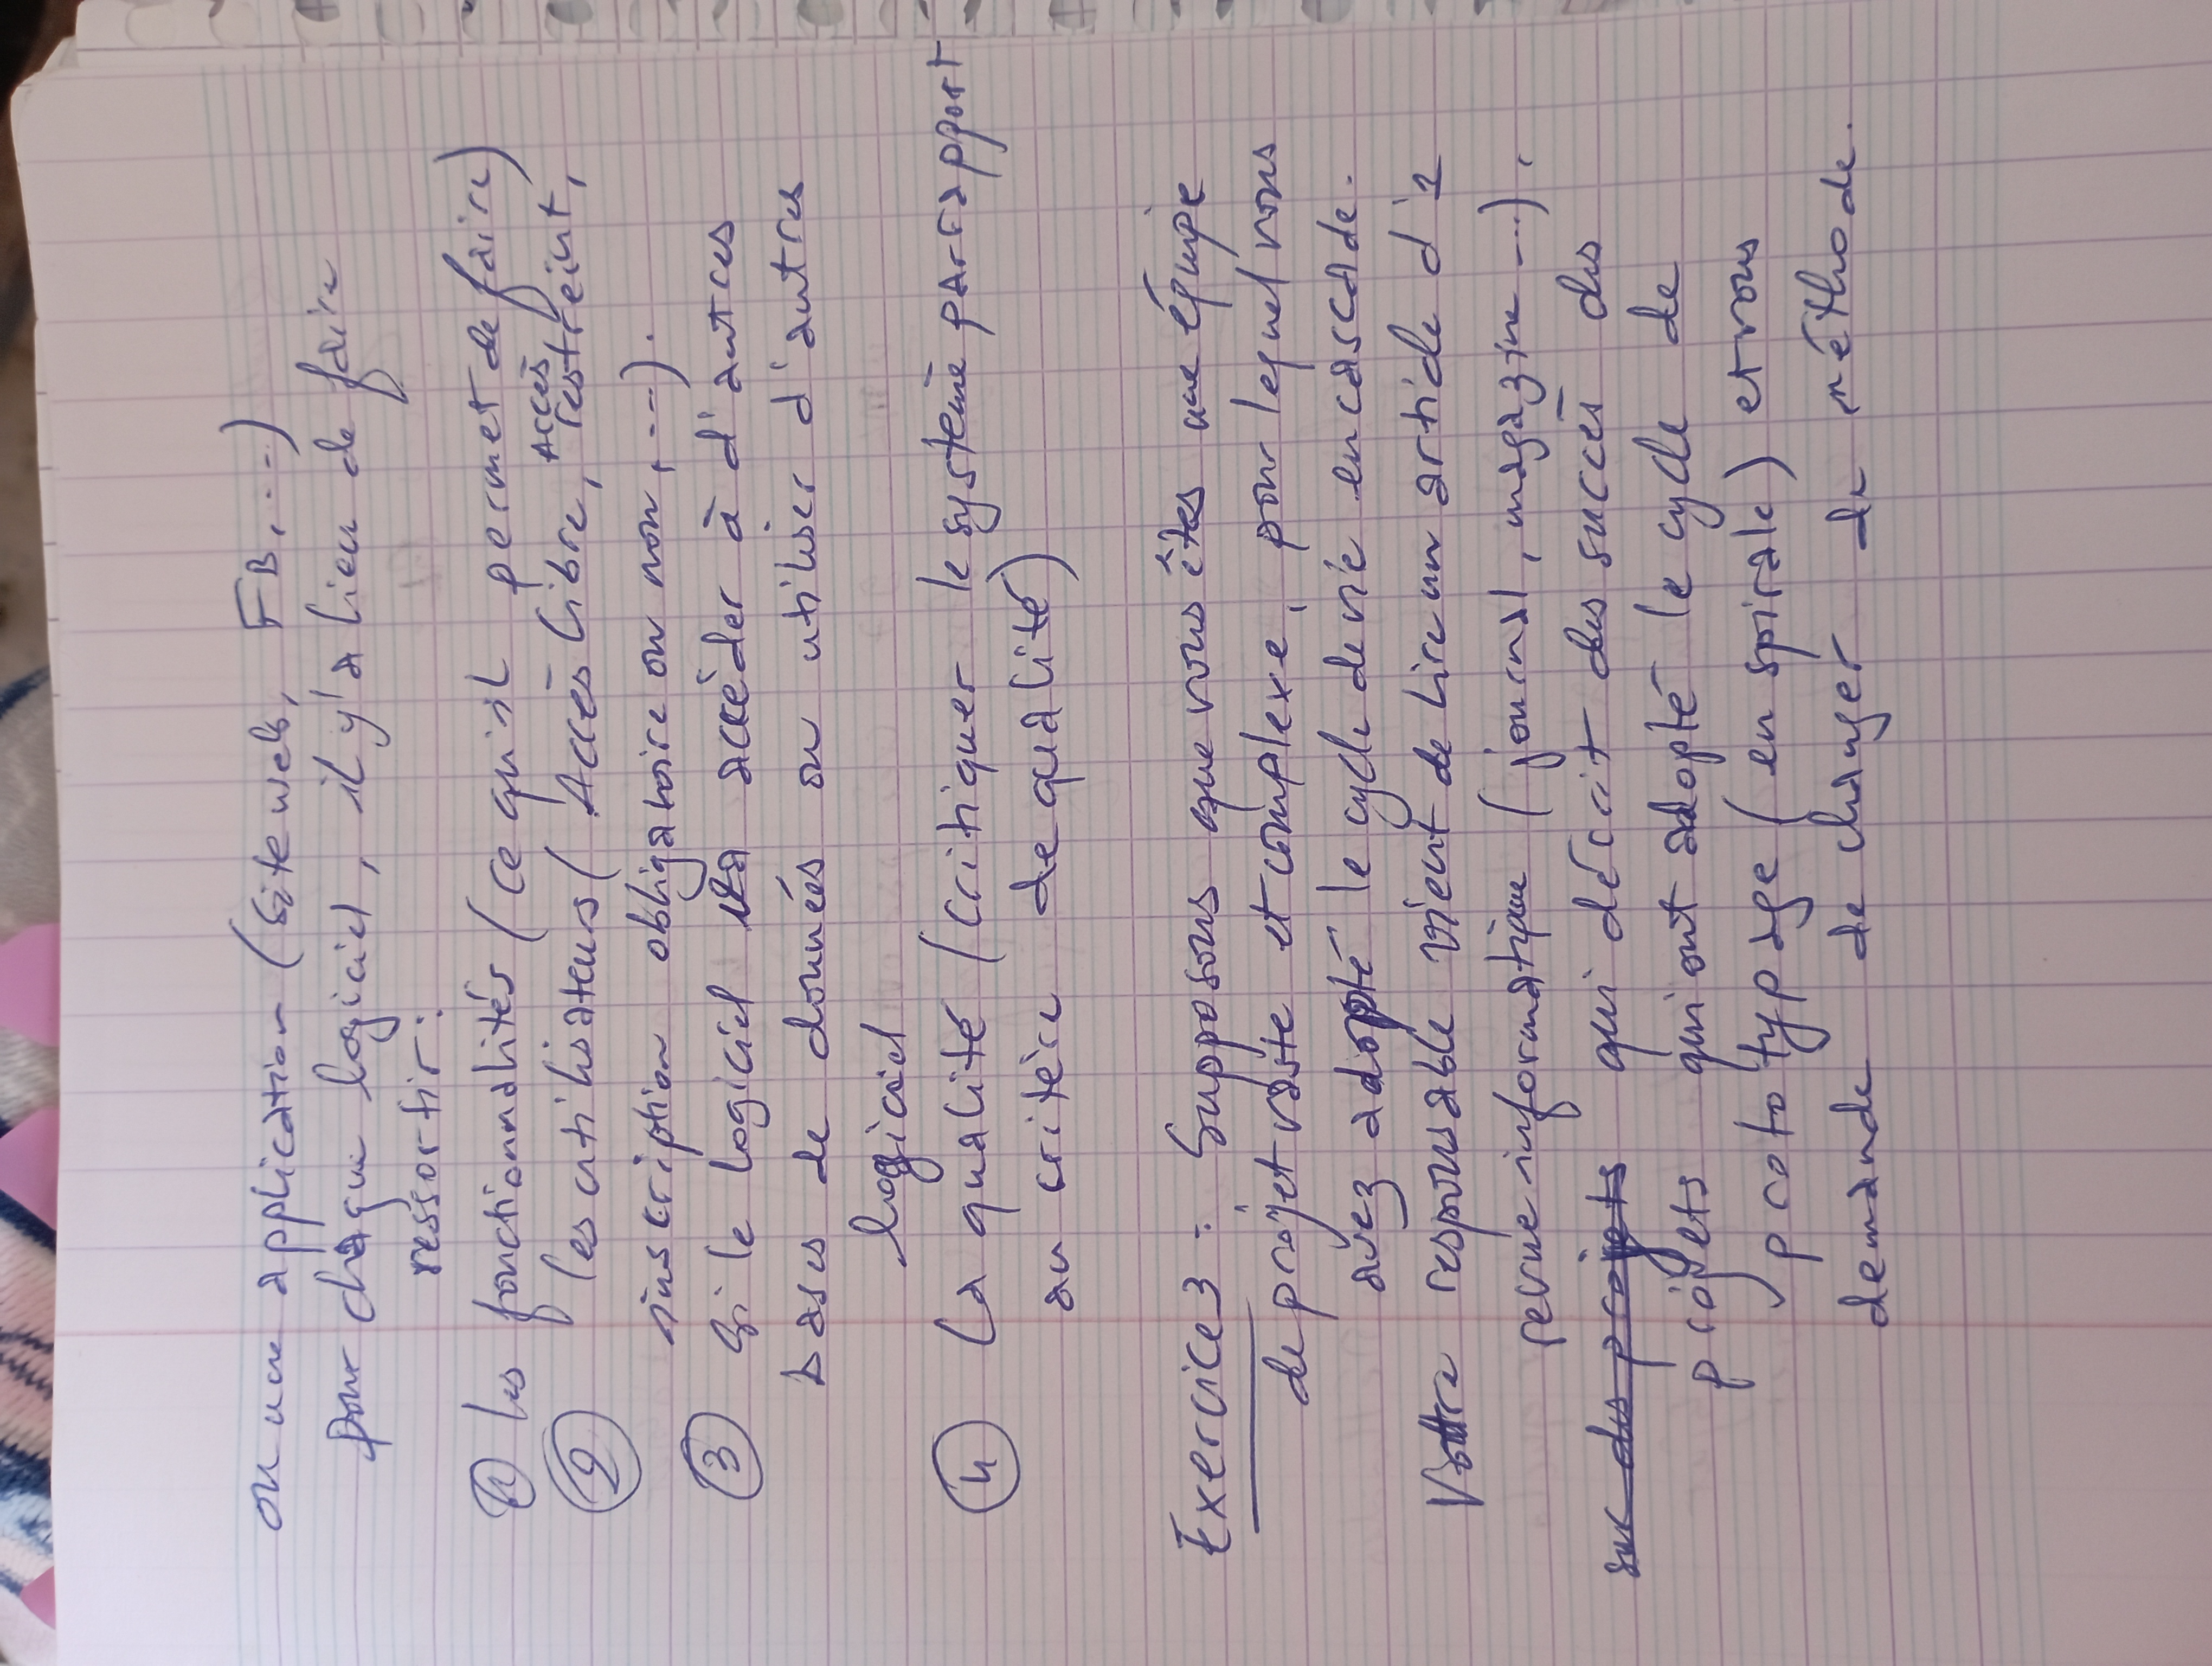 ou une application (site web, FB, ...)
pour chaque logiciel, il y'a lieu de faire
ressortir :
① les fonctionnalités (ce qu'il permet de faire)
② les utilisateurs ( Accès libre, Accès restreint,
inscription obligatoire ou non, ...).
③ Si le logiciel va accèder à d'autres
bases de données ou utiliser d'autres
logiciel
④ La qualité (critiquer le système par rapport
au critère de qualité)
Exercice 3 : Supposons que vous êtes une équipe
de projet vaste et complexe, pour lequel vous
avez adopté le cycle de vie en cascade.
Votre responsable vient de lire un article d'1
revue informatique (journal, magazine ...),
sur des projets qui décrit des succès des
projets qui ont adopté le cycle de
prototypage (en spirale) et vous
demande de changer de méthode.